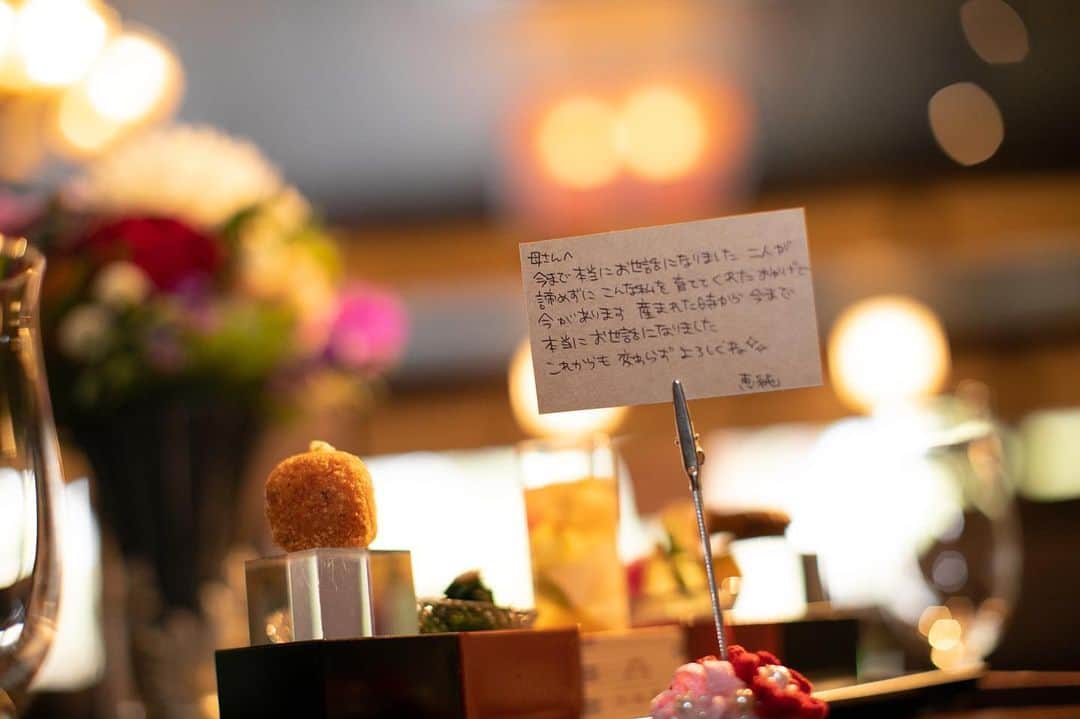 母さんへ
今まで本当にお世話になりました 二人が
諦めずに こんな私を 育ててくれた おかげで
今があります 産まれた時から 今まで
本当に お世話になりました
これからも 変わらず よろしくね
恵純